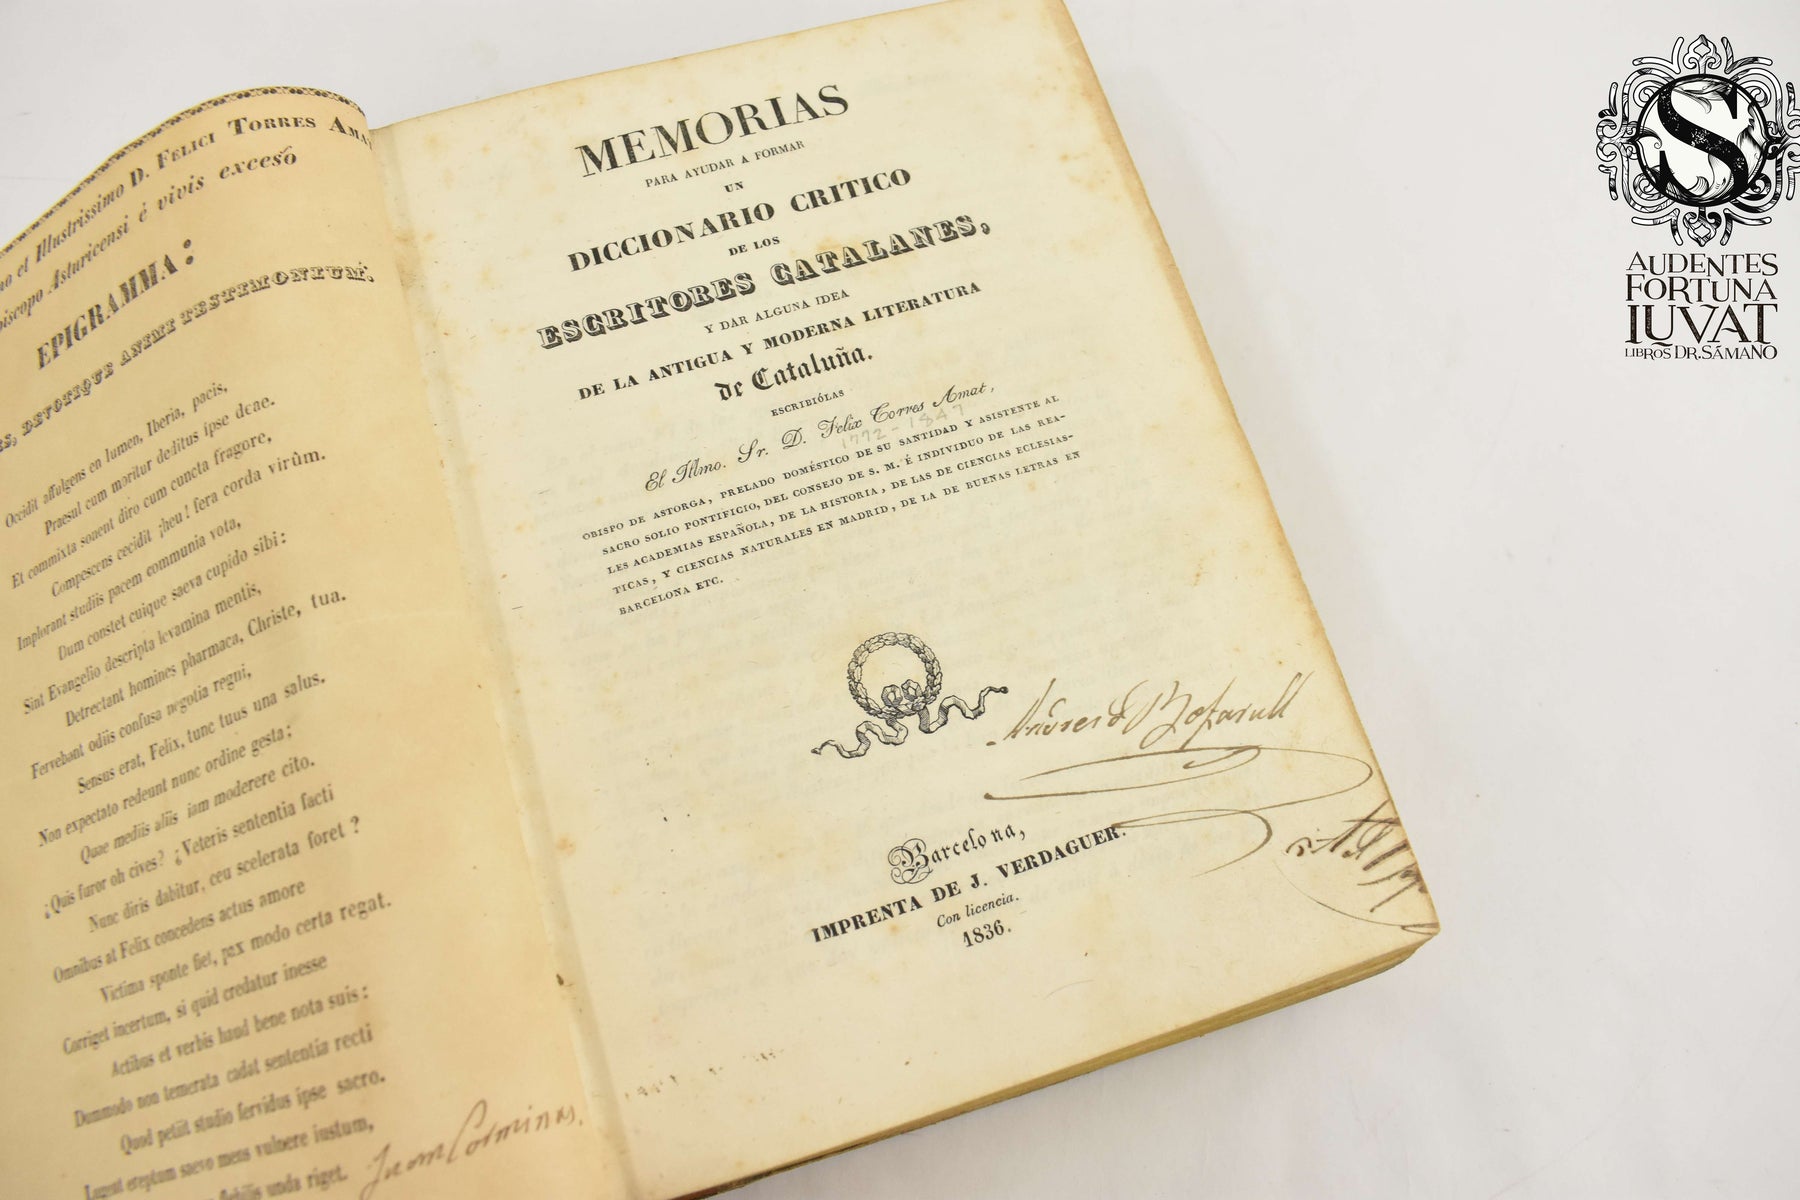 D. FELICI TORRES
et Illustrissimo
Asturicensi é vivis exceso
EPIGRAMMA:
DEVOTIQUE ANIMI TESTIMONIUM.
Occidit affulgens en lumen, Iberia, pacis,
Praesul cum moritur deditus ipse deae.
Et commixta sonent diro cum cuncta fragore,
Compescens cecidit ¡heu! fera corda virûm.
Implorant studiis pacem communia vota,
Dum constet cuique saeva cupido sibi:
Sint Evangelio descripta levamina mentis,
Detrectant homines pharmaca, Christe, tua.
Fervebant odiis confusa negotia regni,
Sensus erat, Felix, tunc tuus una salus.
Non expectato redeunt nunc ordine gesta;
Quae mediis aliis iam moderere cito.
¿Quis furor oh cives? ¿Veteris sententia facti
Nunc diris dabitur, ceu scelerata foret?
Omnibus at Felix concedens actus amore
Victima sponte fiet, pax modo certa regat.
Corriget incertum, si quid credatur inesse
Actibus et verbis haud bene nota suis:
Dummodo non temerata cadat sententia recti
Quod petiit studio fervidus ipse sacro.
Lugent ereptum saevo mens vulnere iustum,
unda riget.
Juan Corminas.
MEMORIAS
PARA AYUDAR A FORMAR
UN
DICCIONARIO CRITICO
DE LOS
ESCRITORES CATALANES,
Y DAR ALGUNA IDEA
DE LA ANTIGUA Y MODERNA LITERATURA
de Cataluña.
ESCRIBIÓLAS
El Illmo. Sr. D. Felix Torres Amat,
1772-1847
OBISPO DE ASTORGA, PRELADO DOMÉSTICO DE SU SANTIDAD Y ASISTENTE AL
SACRO SOLIO PONTIFICIO, DEL CONSEJO DE S. M. É INDIVIDUO DE LAS REA-
LES ACADEMIAS ESPAÑOLA, DE LA HISTORIA, DE LAS DE CIENCIAS ECLESIAS-
TICAS, Y CIENCIAS NATURALES EN MADRID, DE LA DE BUENAS LETRAS EN
BARCELONA ETC.
Bofarull
Barcelona,
IMPRENTA DE J. VERDAGUER.
Con licencia.
1836.
S
AUDENTES
FORTUNA
IUVAT
LIBROS DR. SÁMANO